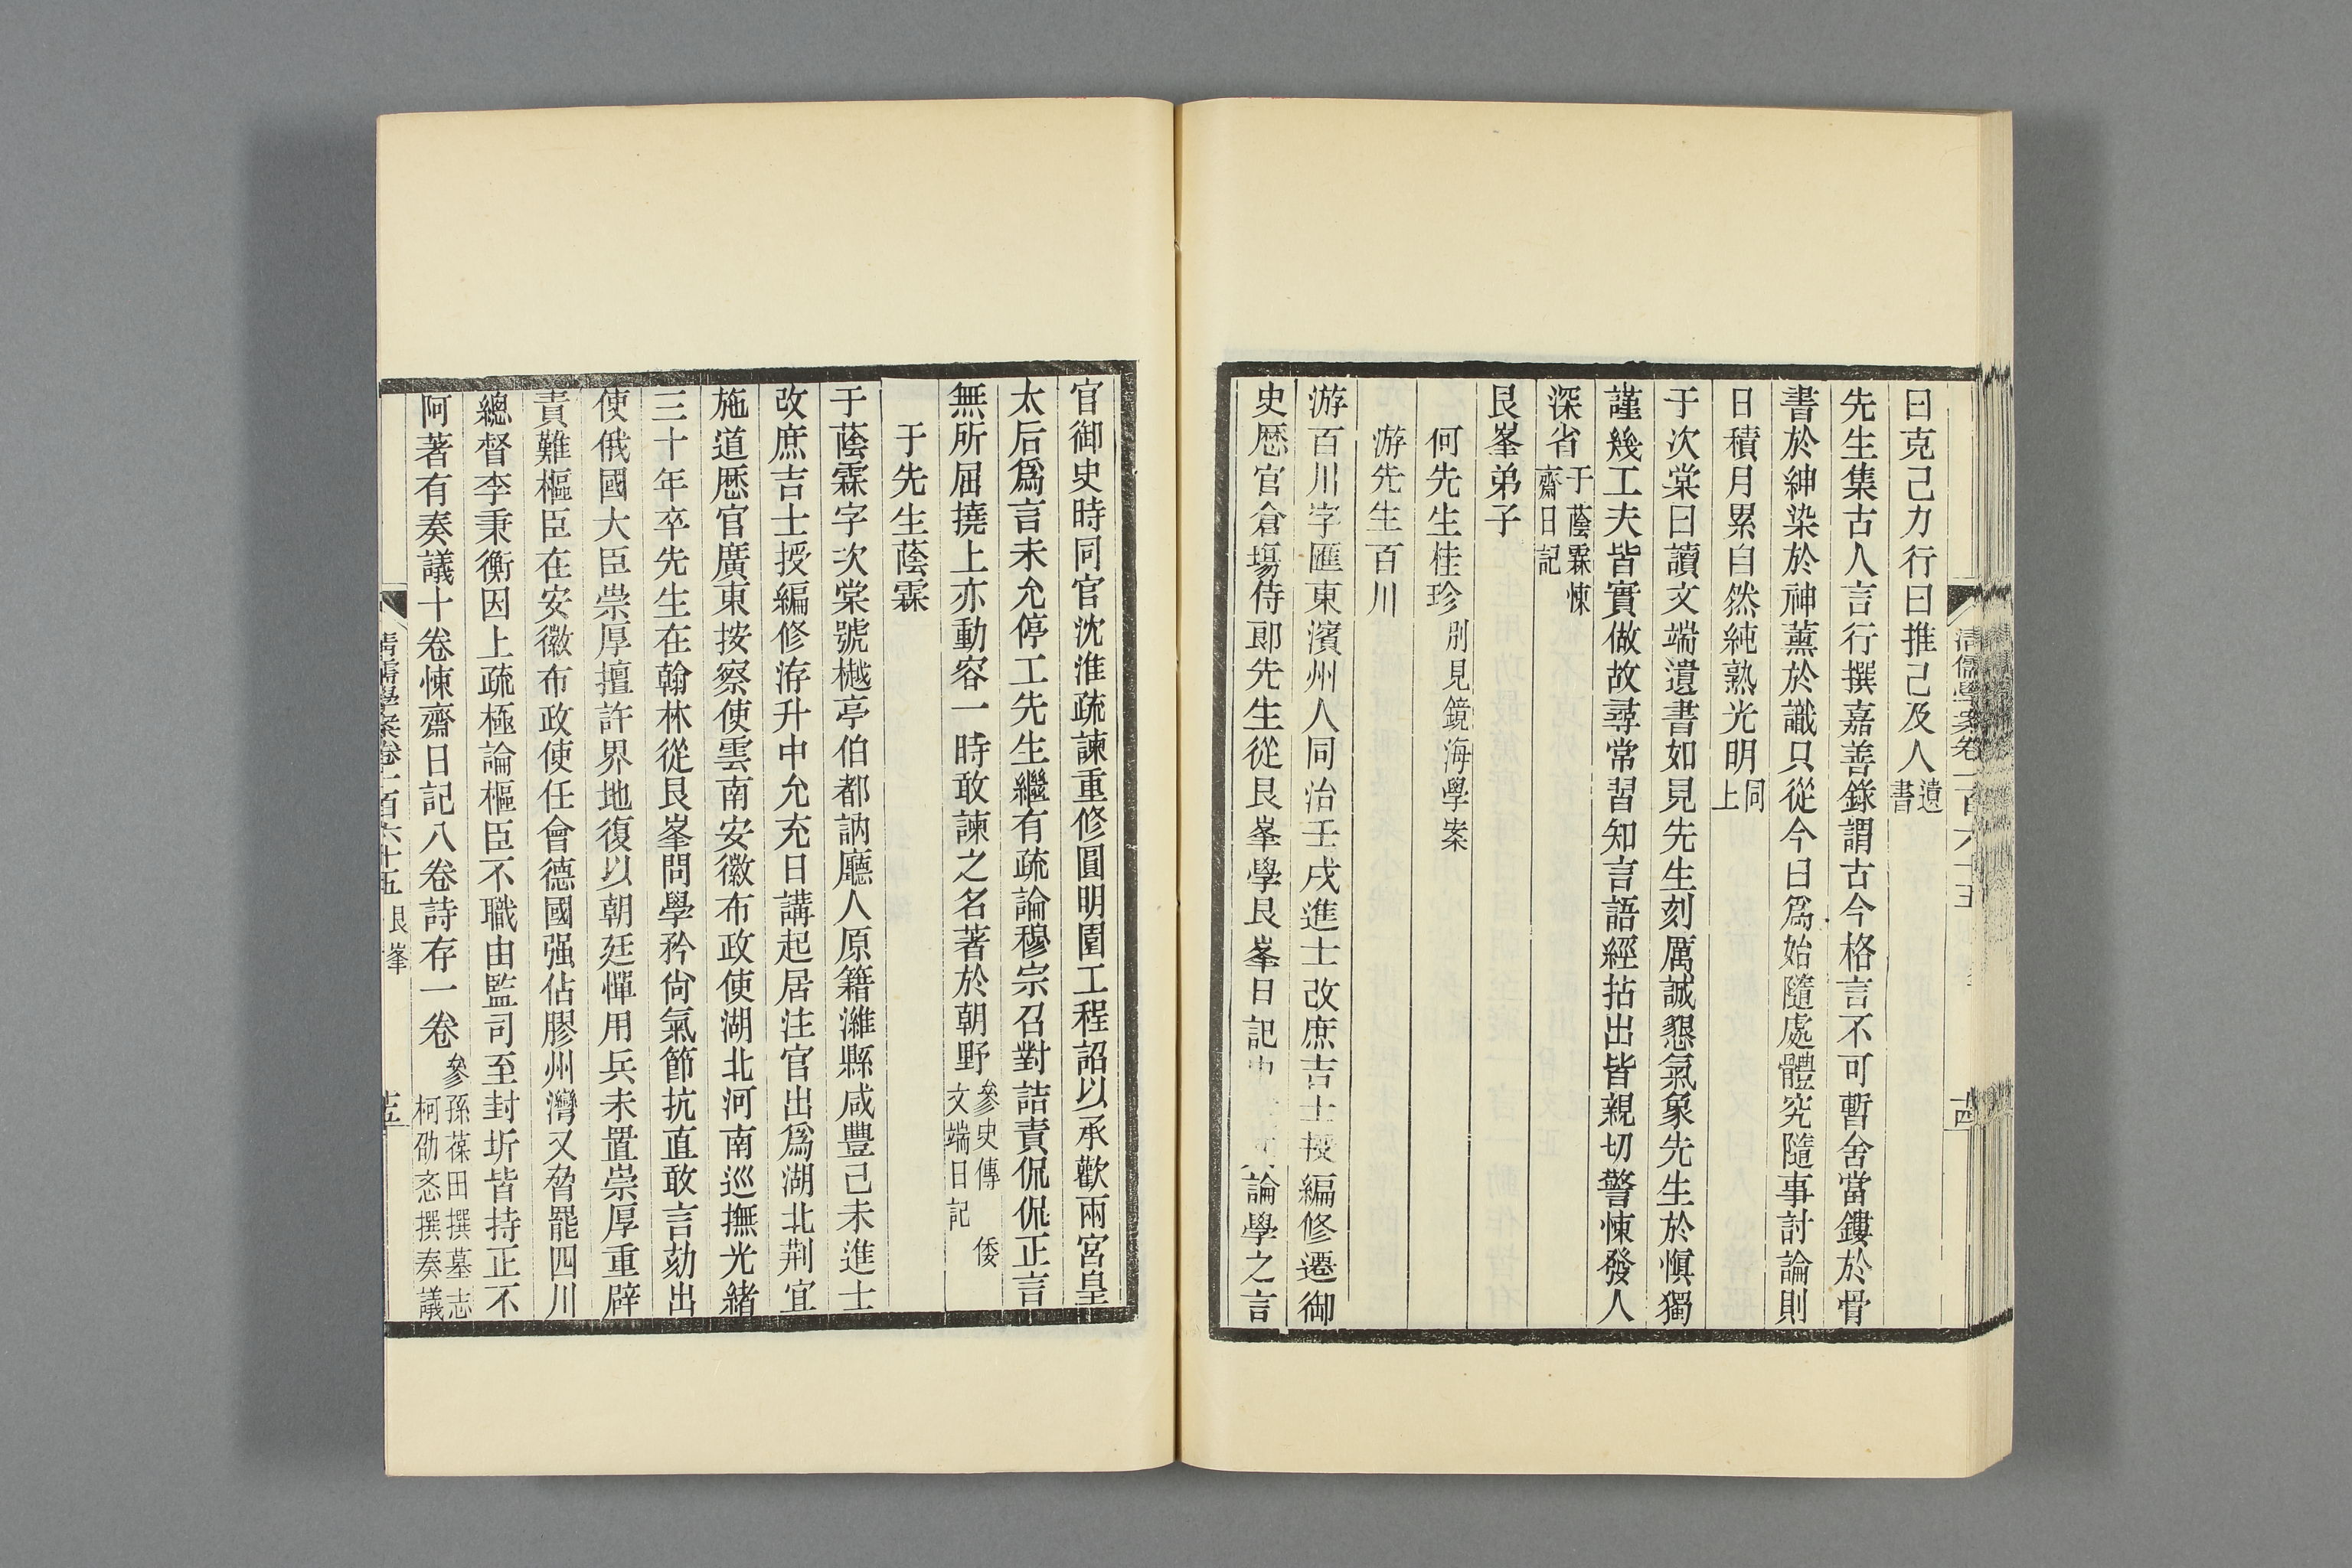 清儒學案卷一百六十五
十四
曰克己力行曰推己及人遺書
先生集古人言行撰嘉善錄謂古今格言不可暫舍當鏤於骨
書於紳染於神薰於識只從今日爲始隨處體究隨事討論則
日積月累自然純熟光明同上
于次棠曰讀文端遺書如見先生刻厲誠懇氣象先生於愼獨
謹幾工夫皆實做故尋常習知言語經拈出皆親切警悚發人
深省于蔭霖悚齋日記
艮峯弟子
何先生桂珍別見鏡海學案
游先生百川
游百川字匯東濱州人同治壬戌進士改庶吉士授編修遷御
史歷官倉場侍郎先生從艮峯學艮峯日記中論學之言
官御史時同官沈淮疏諫重修圓明園工程詔以承歡兩宮皇
太后爲言未允停工先生繼有疏論穆宗召對詰責侃侃正言
無所屈撓上亦動容一時敢諫之名著於朝野參史傳 倭文端日記
于先生蔭霖
于蔭霖字次棠號樾亭伯都訥廳人原籍濰縣咸豐己未進士
改庶吉士授編修洊升中允充日講起居注官出爲湖北荆宜
施道歷官廣東按察使雲南安徽布政使湖北河南巡撫光緒
三十年卒先生在翰林從艮峯問學矜尙氣節抗直敢言劾出
使俄國大臣崇厚擅許界地復以朝廷憚用兵未置崇厚重辟
責難樞臣在安徽布政使任會德國强佔膠州灣又脅罷四川
總督李秉衡因上疏極論樞臣不職由監司至封圻皆持正不
阿著有奏議十卷悚齋日記八卷詩存一卷參孫葆田撰墓志柯劭忞撰奏議
清儒學案卷一百六十五 艮峯
十五